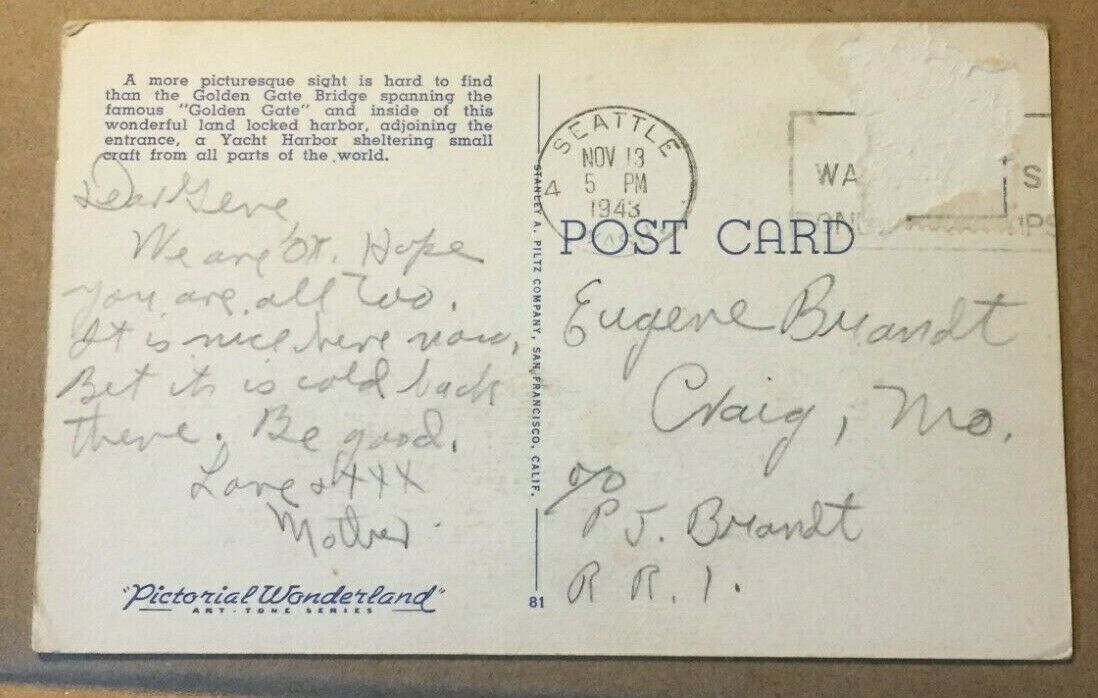 A more picturesque sight is hard to find
than the Golden Gate Bridge spanning the
famous "Golden Gate" and inside of this
wonderful land locked harbor, adjoining the
entrance, a Yacht Harbor sheltering small
craft from all parts of the world.
Dear Gene,
We are OK. Hope
you are all too.
It is nice here now,
Bet it is cold back
there. Be good.
Love & XXX
Mother
"Pictorial Wonderland"
ART-TONE SERIES
STANLEY A. PILTZ COMPANY, SAN FRANCISCO, CALIF.
81
SEATTLE
4
NOV 13
5 PM
1943
WA S
POST CARD
Eugene Brandt
Craig, Mo.
c/o
P J. Brandt
R R. 1.